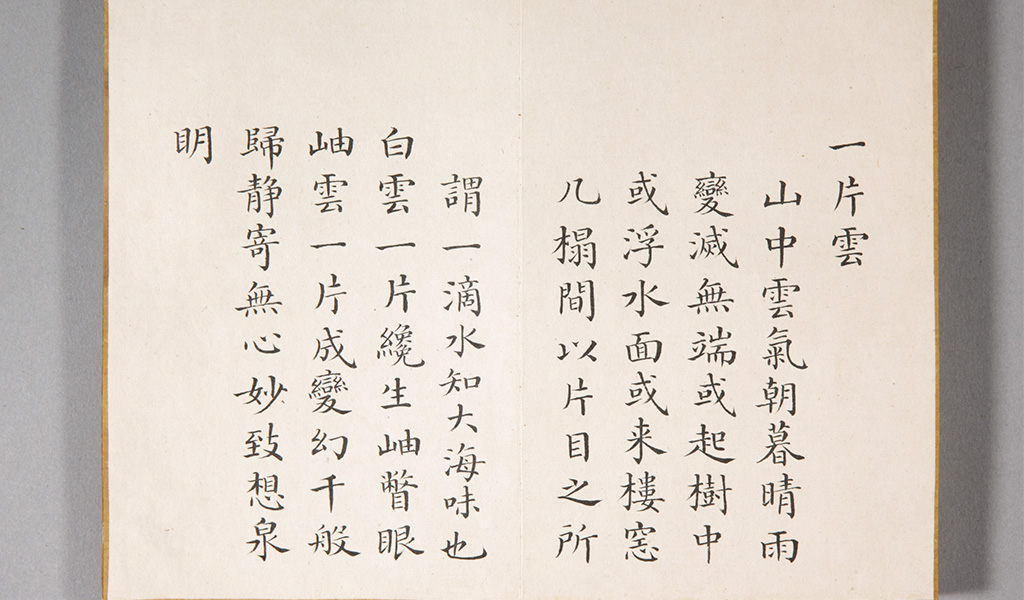 一片雲
山中雲氣朝暮晴雨
變滅無端或起樹中
或浮水面或来樓窓
几榻間以片目之所
謂一滴水知大海味也
白雲一片纔生岫瞥眼
岫雲一片成變幻千般
歸静寄無心妙致想泉
明